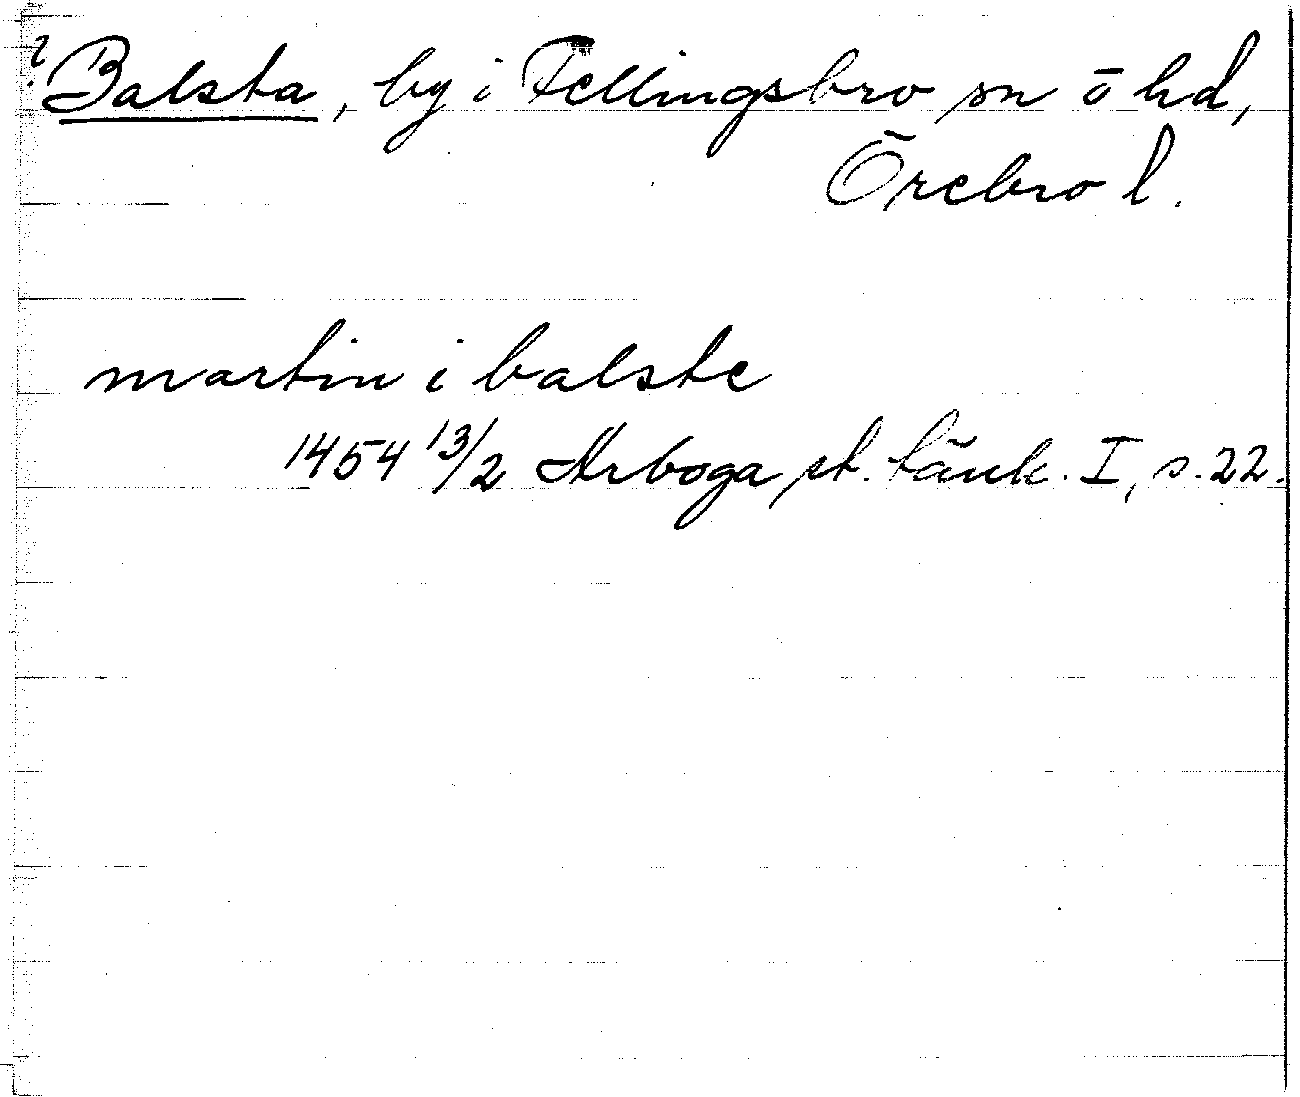 ? Balsta, by i Fellingsbro sn o hd,
Örebro l.
martin i balste
1454 13/2 Arboga st. tänk. I, s. 22.